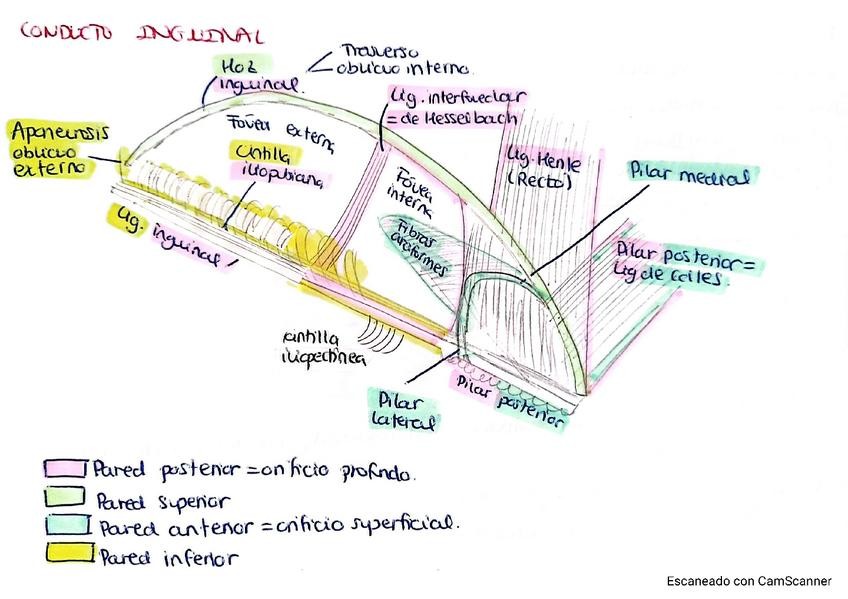 CONDUCTO INGUINAL
Hoz
inguinal.
Traverso
oblicuo interno.
Lig. interfoveolar
= de Hesselbach
Aponeurosis
oblicuo
externo
Fóvea externa
Cintilla
iliopubiana
Lig. Henle
(Recto)
Pilar medial
Fóvea
interna
Fibras
arciformes
Lig. inguinal
Pilar posterior =
Lig de Colles.
cintilla
iliopectínea
Pilar
lateral
Pilar posterior
Pared posterior = orificio profundo.
Pared superior
Pared anterior = orificio superficial.
Pared inferior
Escaneado con CamScanner